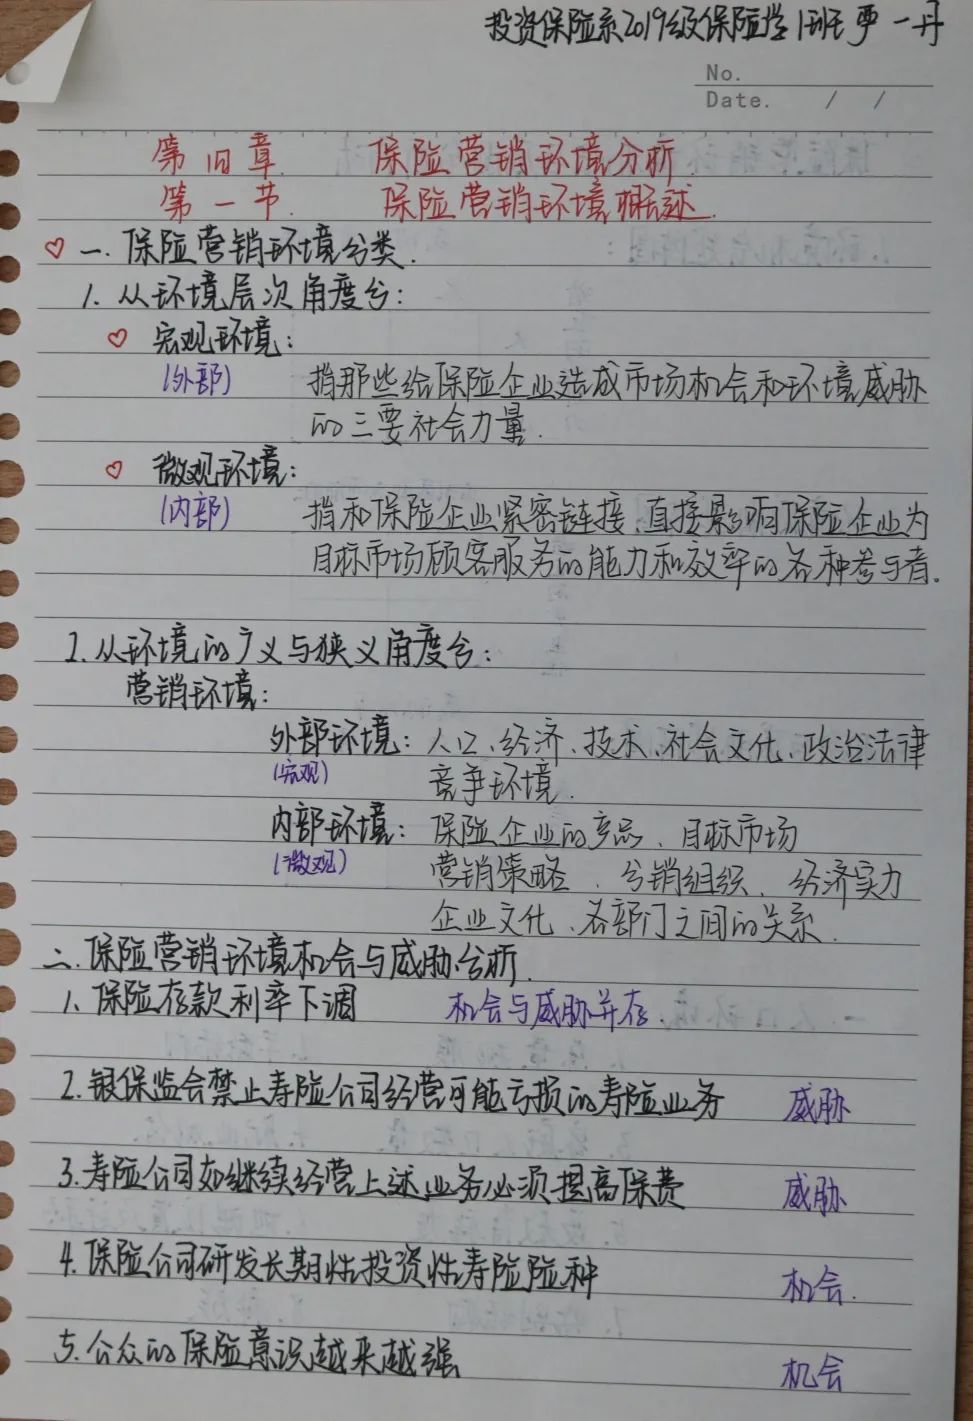 投资保险系2019级保险学1班 严一丹
No.
Date. / /
第四章 保险营销环境分析
第一节. 保险营销环境概述.
一. 保险营销环境分类.
1. 从环境层次角度分:
宏观环境:
(外部) 指那些给保险企业造成市场机会和环境威胁
的主要社会力量.
微观环境:
(内部) 指和保险企业紧密链接,直接影响保险企业为
目标市场顾客服务的能力和效率的各种参与者.
2. 从环境的广义与狭义角度分:
营销环境:
外部环境: 人口、经济、技术、社会文化、政治法律
(宏观) 竞争环境.
内部环境: 保险企业的产品、目标市场
(微观) 营销策略、分销组织、经济实力
企业文化、各部门之间的关系.
二. 保险营销环境机会与威胁分析.
1. 保险存款利率下调 机会与威胁并存.
2. 银保监会禁止寿险公司经营可能亏损的寿险业务 威胁
3. 寿险公司如继续经营上述业务必须提高保费 威胁
4. 保险公司研发长期性投资性寿险险种 机会.
5. 公众的保险意识越来越强 机会